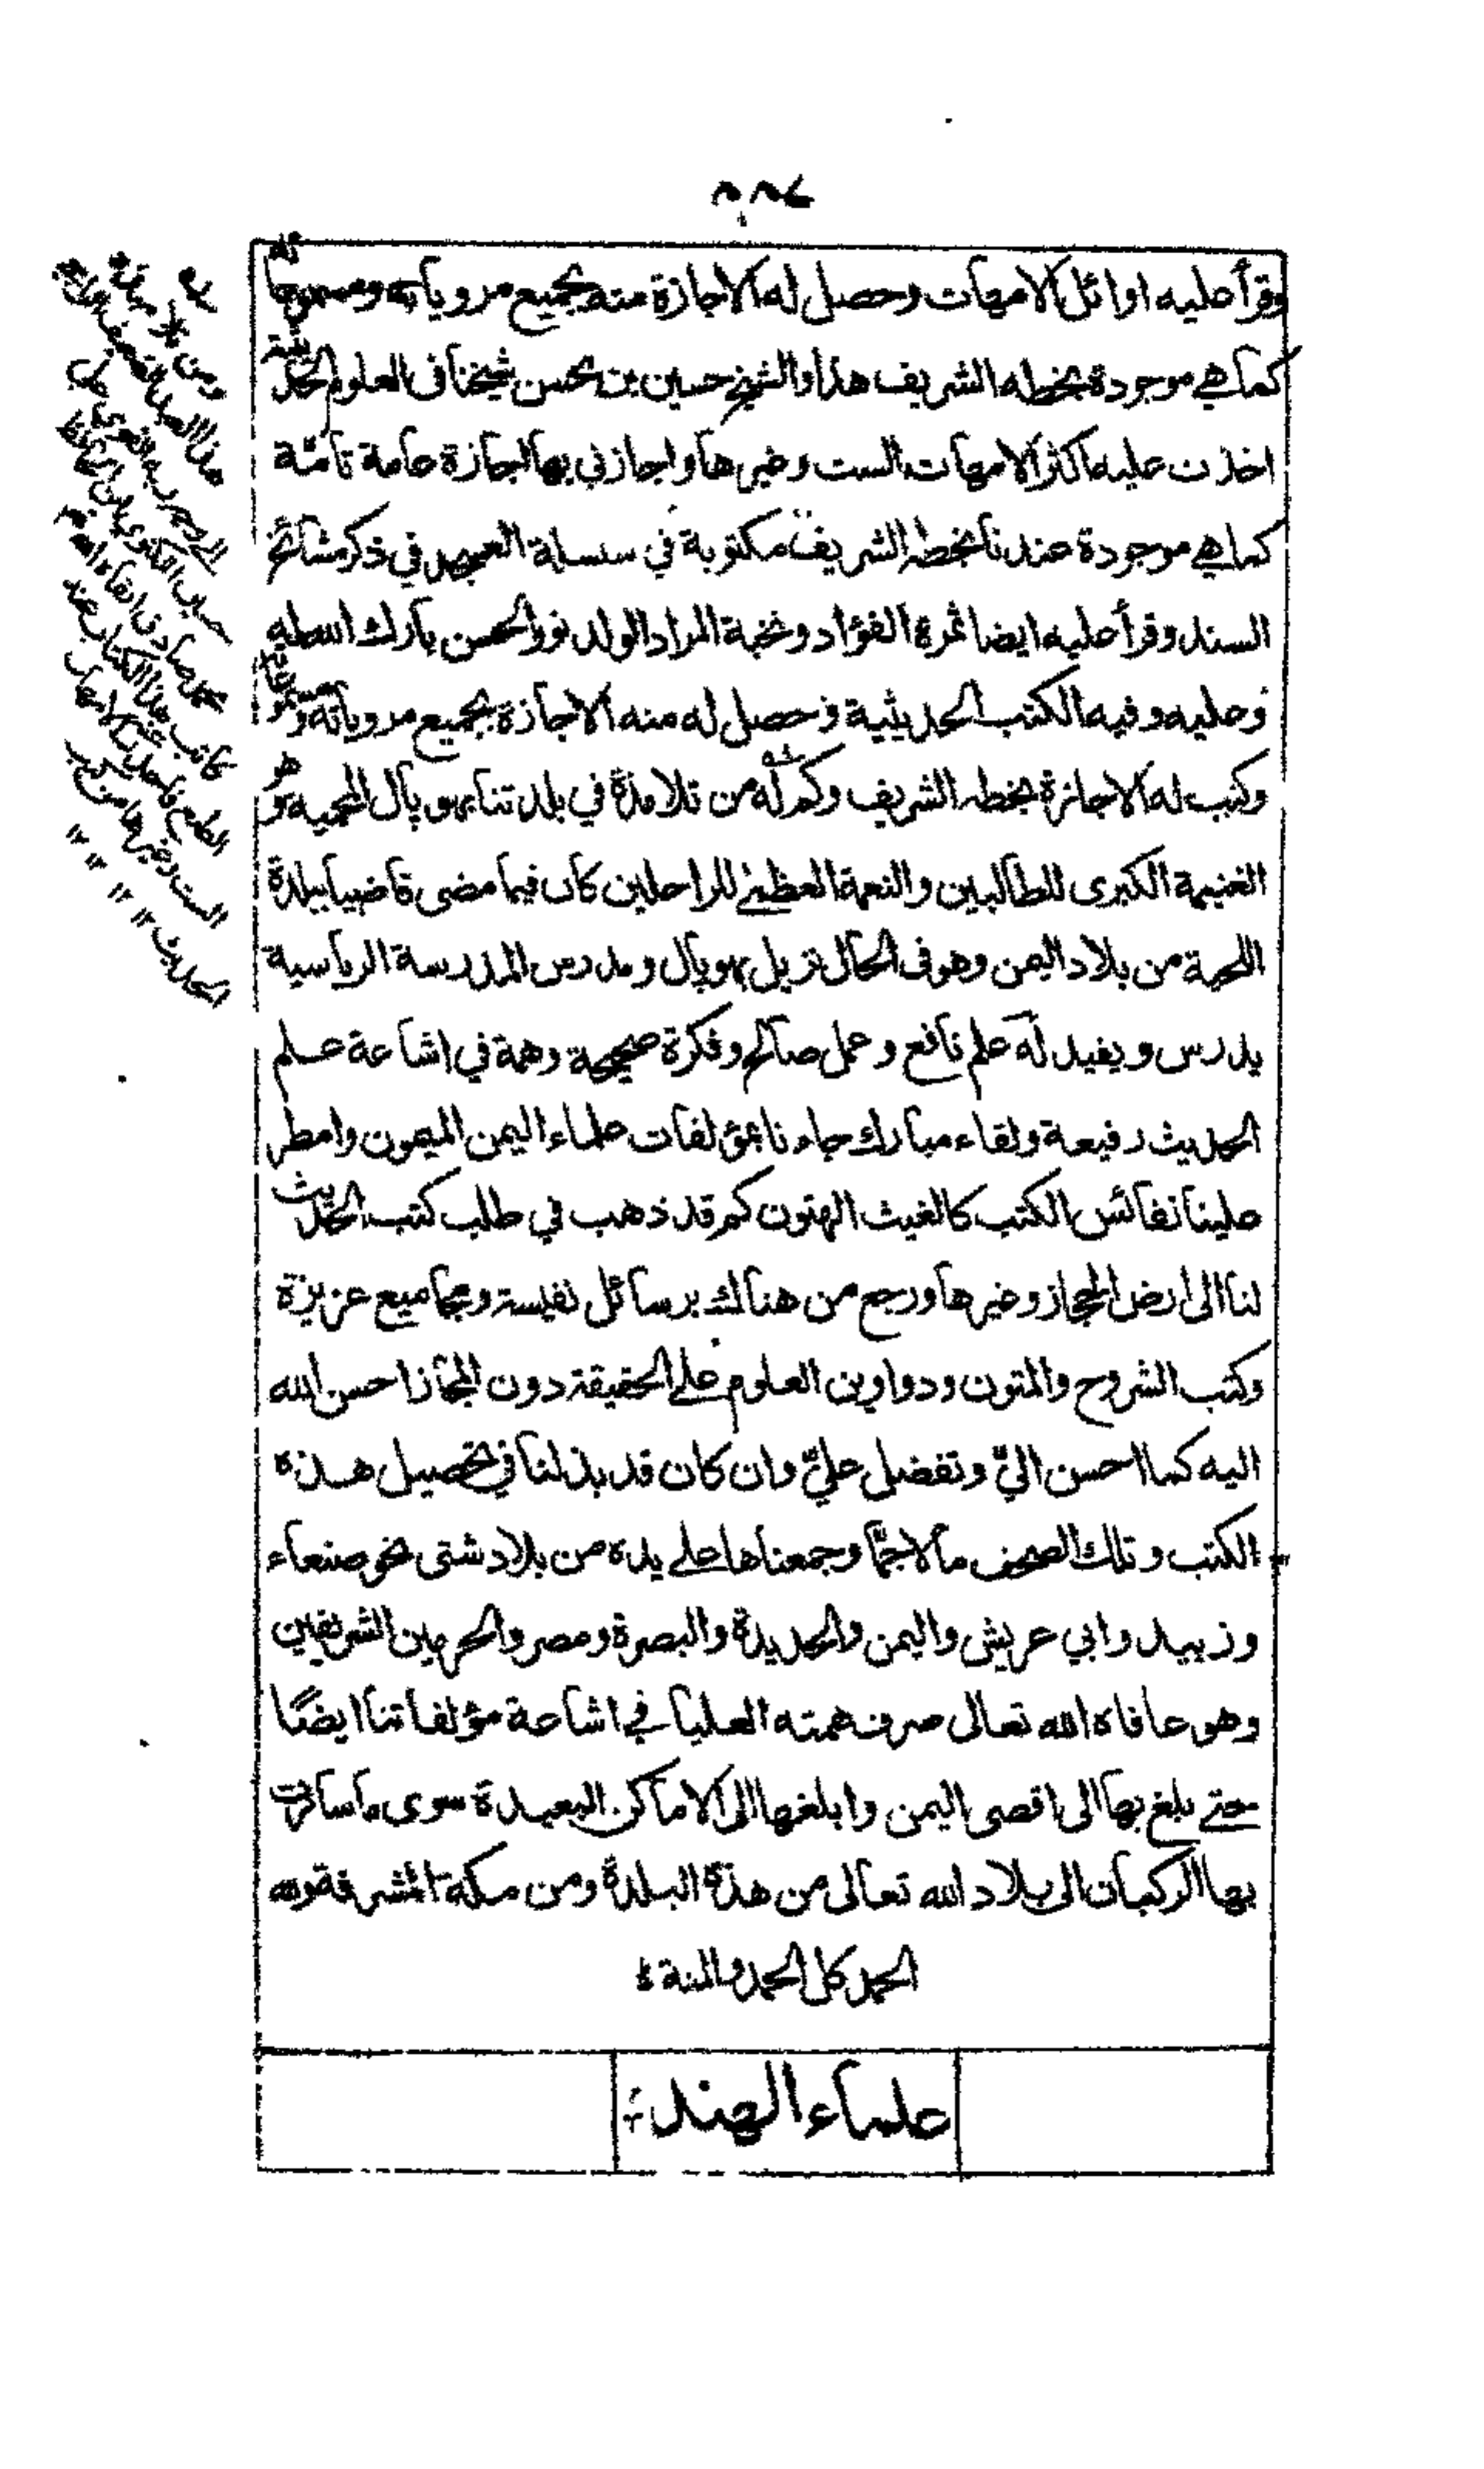 وقرأ عليه اوائل الامهات وحصل له الاجازة منه بجميع مروياته ومسموعاته
كما هي موجودة بخطه الشريف هذا والشيخ حسين بن محسن شيخنا في العلوم الحديثية
اخذت عليه اكثر الامهات الست وغيرها واجازني بها اجازة عامة تامّة
كما هي موجودة عندنا بخطه الشريف مكتوبة في سلسلة العسجد في ذكر مشائخ
السند وقرأ عليه ايضا ثمرة الفؤاد ونخبة المراد الولد نور الحسن بارك الله له
وعليه وفيه الكتب الحديثية وحصل له منه الاجازة بجميع مروياته ومسموعاته
وكتب له الاجازة بخطه الشريف وكم له من تلامذة في بلدتنا بهوپال المحمية وهو
الغنيمة الكبرى للطالبين والنعمة العظمى للراحلين كان فيما مضى قاضيا ببلدة
اللحية من بلاد اليمن وهو في الحال نزيل بهوپال ومدرس المدرسة الرياسية
يدرس ويفيد له علم نافع وعمل صالح وفكرة صحيحة وهمة في اشاعة علم
الحديث رفيعة ولقاء مبارك جاءنا بمؤلفات علماء اليمن الميمون وامطر
علينا نفائس الكتب كالغيث الهتون كم قد ذهب في طلب كتب الحديث
لنا الى ارض الحجاز وغيرها ورجع من هنالك برسائل نفيسة ومجاميع عزيزة
وكتب الشروح والمتون ودواوين العلوم على الحقيقة دون المجاز احسن الله
اليه كما احسن اليّ وتفضل عليّ وان كان قد بذلنا في تحصيل هذه
الكتب وتلك الصحف مالا جمًّا وجمعناها على يده من بلاد شتى نحو صنعاء
وزبيد وابي عريش واليمن والحديدة والبصرة ومصر والحرمين الشريفين
وهو عافاه الله تعالى صرف همته العليا في اشاعة مؤلفاتنا ايضًا
حتى بلغ بها الى اقصى اليمن وابلغها الى الاماكن البعيدة سوى ما سافرت
بها الركبان الى بلاد الله تعالى من هذه البلدة ومن مكة المشرفة ولله
الحمد كل الحمد والمنة
علماء الهند